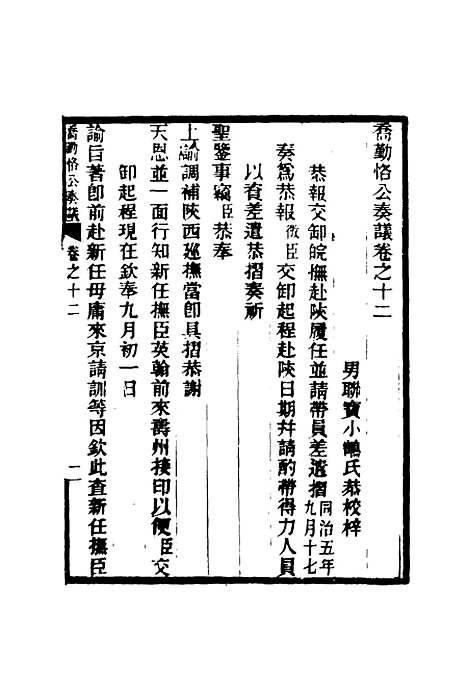 喬勤恪公奏議卷之十二
男聯寶小鶴氏恭校梓
恭報交卸皖撫赴陝履任並請帶員差遣摺同治五年九月十七
奏為恭報微臣交卸起程赴陝日期幷請酌帶得力人員
以資差遣恭摺奏祈
聖鑒事竊臣恭奉
上諭調補陝西廵撫當卽具摺恭謝
天恩並一面行知新任撫臣英翰前來壽州接印以便臣交
卸起程現在欽奉九月初一日
諭旨著卽前赴新任毋庸來京請訓等因欽此查新任撫臣
喬勤恪公奏議 卷之十二 一